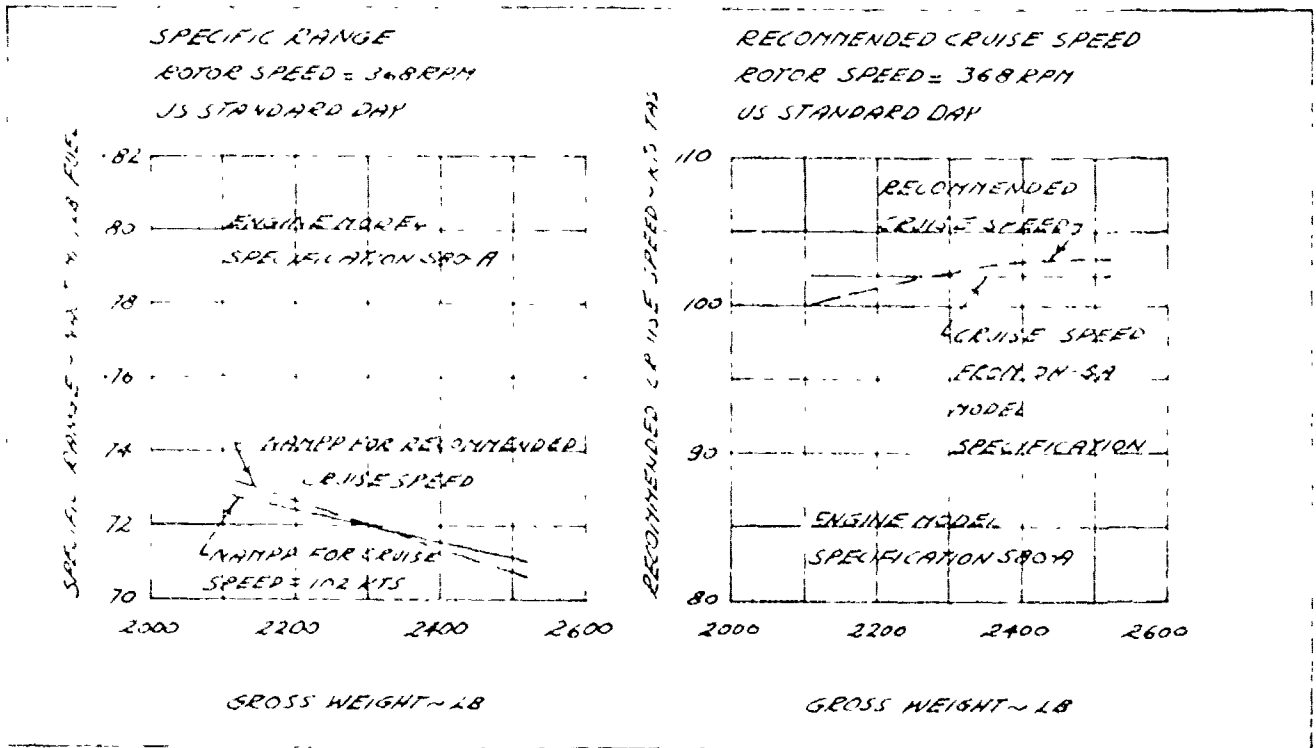 SPECIFIC RANGE
ROTOR SPEED = 368 RPM
US STANDARD DAY
SPECIFIC RANGE ~ LB FUEL
.82
.80
.78
.76
.74
.72
.70
ENGINE MODEL
SPECIFICATION 580-A
NAMPP FOR RECOMMENDED
CRUISE SPEED
NAMPP FOR CRUISE
SPEED = 102 KTS
2000 2200 2400 2600
GROSS WEIGHT ~ LB
RECOMMENDED CRUISE SPEED
ROTOR SPEED = 368 RPM
US STANDARD DAY
RECOMMENDED CRUISE SPEED ~ KTS TAS
110
100
90
80
RECOMMENDED
CRUISE SPEED
CRUISE SPEED
FROM OH-5A
MODEL
SPECIFICATION
ENGINE MODEL
SPECIFICATION 580-A
2000 2200 2400 2600
GROSS WEIGHT ~ LB